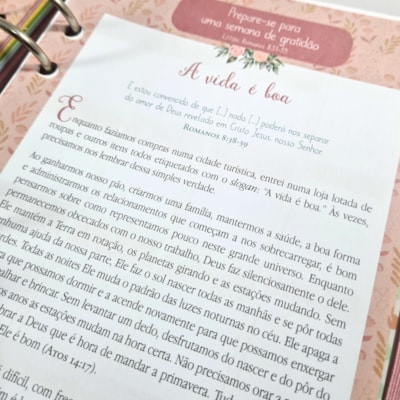 Prepare-se para
uma semana de gratidão
Leitura: Romanos 8:31-39
A vida é boa
E estou convencido de que [...] nada [...] poderá nos separar
do amor de Deus revelado em Cristo Jesus, nosso Senhor.
ROMANOS 8:38-39
Enquanto fazíamos compras numa cidade turística, entrei numa loja lotada de
roupas e outros itens todos etiquetados com o slogan: "A vida é boa." Às vezes,
precisamos nos lembrar dessa simples verdade.
Ao ganharmos nosso pão, criarmos uma família, mantermos a saúde, a boa forma
e administrarmos os relacionamentos que começam a nos sobrecarregar, é bom
pensarmos sobre como representamos pouco neste grande universo. Enquanto
permanecemos obcecados com o nosso trabalho, Deus faz silenciosamente o dele.
Ele mantém a Terra em rotação, os planetas girando e as estações mudando. Sem
nenhuma ajuda da nossa parte, Ele faz o sol nascer todas as manhãs e se pôr todas
rdes. Todas as noites Ele muda o padrão das luzes noturnas no céu. Ele apaga a
ra que possamos dormir e a acende novamente para que possamos enxergar
alhar e brincar. Sem levantar um dedo, desfrutamos do nascer e do pôr do
os anos as estações mudam na hora certa. Não precisamos orar a
brar a Deus que é hora de mandar a primavera. Tud
Ele é bom (ATOS 14:17).
difícil, com freq